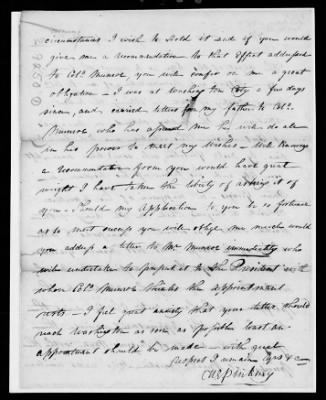 circumstances I wish to hold it and if you would
give me a recommendation to that Effect addressed
to Colo. Munroe, you will confer on me a great
obligation – I was at Washington City a few days
since, and carried letters from my father to Colo.
Munroe who has assured me he will do all
in his power to meet my wishes –
a recommendation from you would have great
weight I have taken the liberty of asking it of
you – should my Application to you be so fortunate
as to meet success you will oblige me much would
you address a letter to Mr Munroe immediately who
will undertake to present it to the President with
whom Colo. Munroe thinks the appointment
rests – I feel great anxiety that your letter should
reach Washington as soon as possible least an
appointment should be made – with great
respect I remain Yrs &c
Pinkney